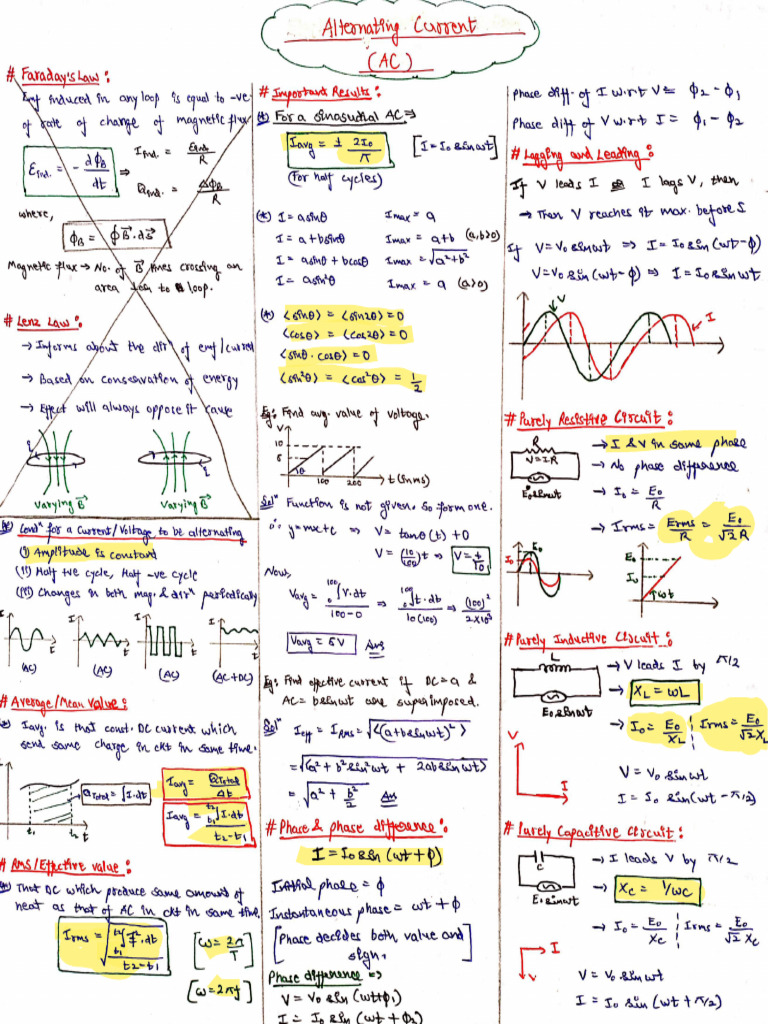 Alternating Current
(AC)
# Faraday's Law :
Emf induced in any loop is equal to -ve
of rate of change of magnetic flux
Eind. = - dΦB/dt ⇒ Iind. = Eind/R
Qind. = ΔΦB/R
where,
ΦB = ∮ B⃗ . ds⃗
Magnetic flux → No. of B⃗ lines crossing an
area to loop.
# Lenz Law :
→ Informs about the dirⁿ of emf/current
→ Based on conservation of energy
→ Effect will always oppose it cause
varying B⃗
varying B⃗
(*) Condⁿ for a Current/Voltage to be alternating
(i) Amplitude is constant
(ii) Half +ve cycle, Half -ve cycle
(iii) Changes in both mag. & dirⁿ periodically
I
t
I
t
I
t
I
t
(AC)
(AC)
(AC)
(AC+DC)
# Average/Mean value :
Iavg. is that const. DC current which
send same charge in ckt in same time.
QTotal = ∫I.dt
Iavg = QTotal/Δt
Iavg = t1∫t2 I.dt / t2-t1
t1
t2
t
# RMS/Effective value :
That DC which produce same amount of
heat as that of AC in ckt in same time.
Irms = √(t1∫t2 I².dt / t2-t1)
[ω = 2π/T]
[ω = 2πf]
# Important Results :
(*) For a sinosudial AC ⇒
Iavg = ± 2I0/π
[I = I0 sinωt]
(For half cycles)
(*) I = a sinθ Imax = a
I = a + b sinθ Imax = a+b (a,b>0)
I = a sinθ + b cosθ Imax = √a²+b²
I = a sin²θ Imax = a (a>0)
(*) ⟨sinθ⟩ = ⟨sin2θ⟩ = 0
⟨cosθ⟩ = ⟨cos2θ⟩ = 0
⟨sinθ . cosθ⟩ = 0
⟨sin²θ⟩ = ⟨cos²θ⟩ = 1/2
Eg: Find avg. value of voltage.
V
10
5
θ
100
200
t (in ms)
Solⁿ Function is not given. So form one.
∴ y = mx+c ⇒ V = tanθ(t) + 0
V = (10/100)t ⇒ V = t/10
Now,
Vavg = 0∫100 V.dt / 100-0 ⇒ 0∫100 t.dt / 10(100) ⇒ (100)² / 2×10³
Vavg = 5V Ans
Eg: Find effective current if DC = a &
AC = b sinωt are superimposed.
Solⁿ Ieff = IRMS = √⟨(a+b sinωt)²⟩
= √⟨a² + b² sin²ωt + 2ab sinωt⟩
= √a² + b²/2 Ans
# Phase & phase difference :
I = I0 sin (ωt + φ)
Initial phase = φ
Instantaneous phase = ωt + φ
[Phase decides both value and
sign.]
Phase difference ⇒
V = V0 sin (ωt+φ1)
I = I0 sin (ωt + φ2)
Phase diff. of I w.r.t V = φ2 - φ1
Phase diff of V w.r.t I = φ1 - φ2
# Lagging and Leading :
If V leads I I lags V, then
→ Then V reaches it max. before I
If V = V0 sinωt ⇒ I = I0 sin (ωt-φ)
V = V0 sin (ωt-φ) ⇒ I = I0 sin ωt
V
I
# Purely Resistive Circuit :
R
V=IR
E0 sinωt
→ I & V in same phase
→ No phase difference
→ I0 = E0/R
→ Irms = Erms/R = E0/√2 R
I0
E0
E0
I0
ωt
# Purely Inductive Circuit :
L
E0 sinωt
→ V leads I by π/2
→ XL = ωL
→ I0 = E0/XL ¦ Irms = E0/√2 XL
V
I
V = V0 sinωt
I = I0 sin(ωt - π/2)
# Purely Capacitive Circuit :
C
E0 sinωt
→ I leads V by π/2
→ XC = 1/ωC
→ I0 = E0/XC ¦ Irms = E0/√2 XC
I
V
V = V0 sinωt
I = I0 sin (ωt + π/2)